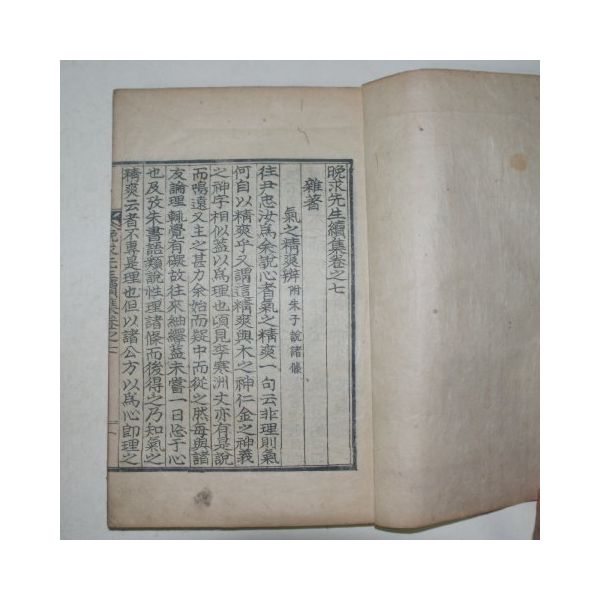 晩求先生續集卷之七
雜著
氣之精爽辨 附朱子說諸條
往尹忠汝爲余說心者氣之精爽一句云非理則氣
何自以精爽乎又謂這精爽與木之神仁金之神義
之神字相似蓋以爲理也頃見李寒洲丈亦有是說
而鳴遠又主之甚力余始而疑中而從之然每與諸
友論理輒覺有礙故往來紬繹蓋未嘗一日忘于心
也及攷朱書語類說性理諸條而後得之乃知氣之
精爽云者不專是理也但以諸公方以爲心卽理之
晩求先生續集卷之七